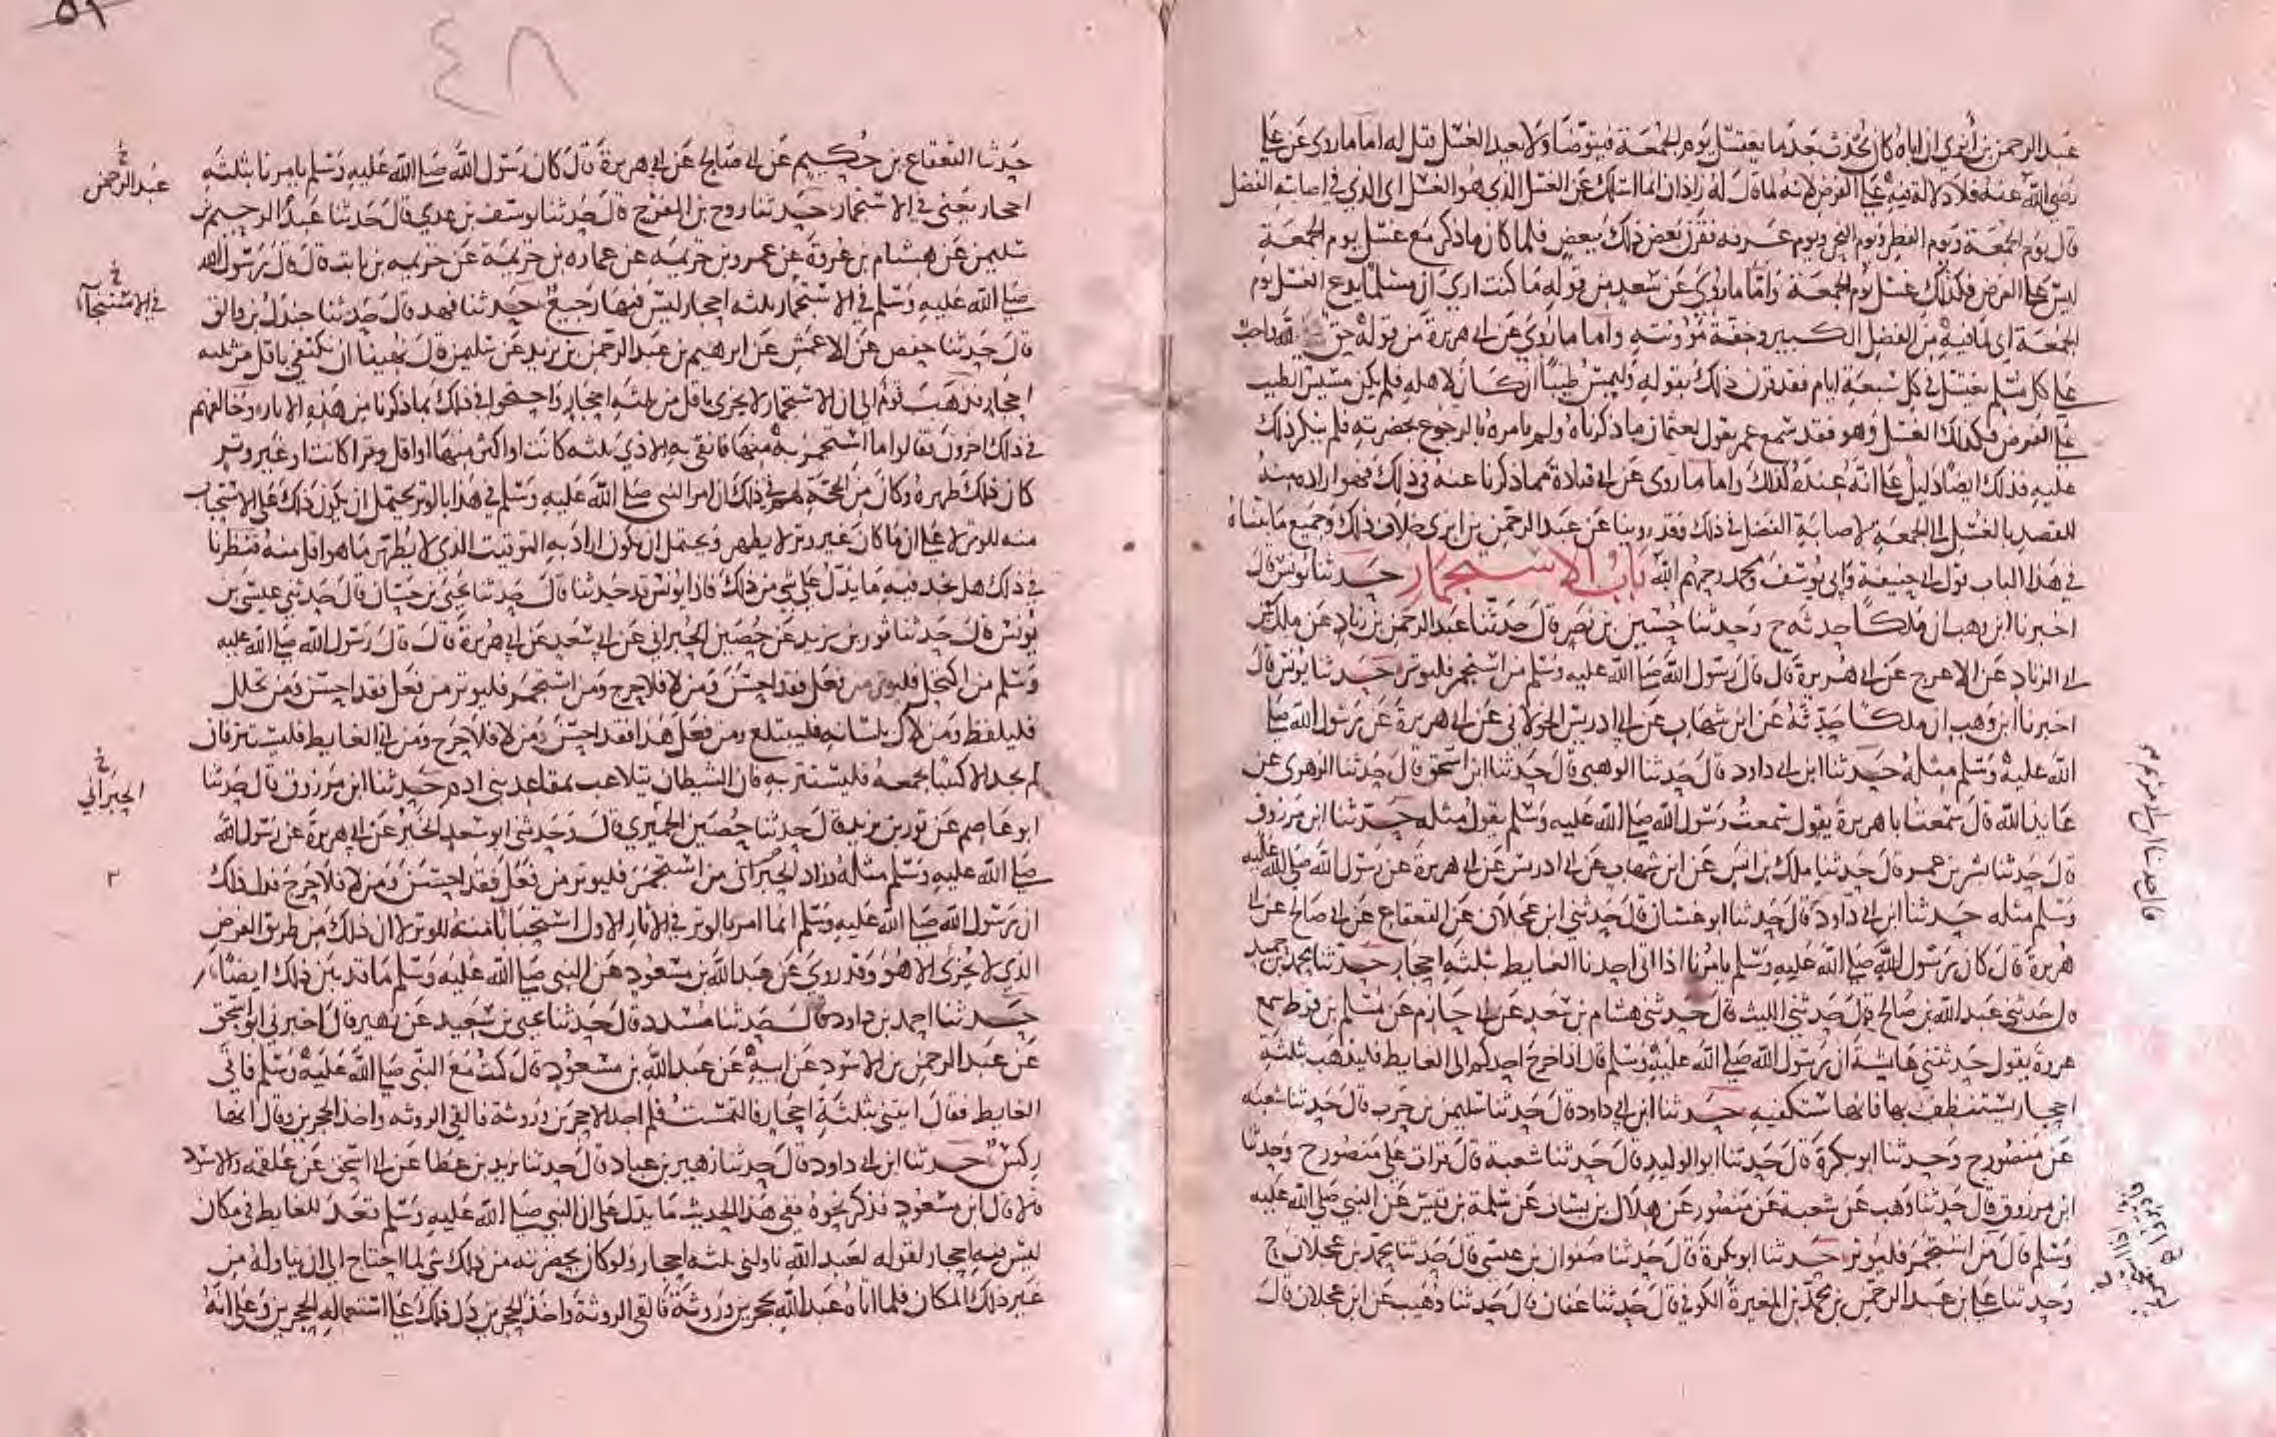 عبد الرحمن بن أبزى ان اباه كان يحدث بعدما يغتسل يوم الجمعة فيتوضا ولا يعيد الغسل قيل له اما ما روى عن على
رضى الله عنه فلا دلالة فيه على الفرض لانه لما قال له زاذان انما اسئلك عن الغسل الذي هو الغسل اى الذي في اصابته الفضل
قال يوم الجمعة ويوم الفطر ويوم النحر ويوم عرفة فقرن بعض ذلك ببعض فلما كان ما ذكر مع غسل يوم الجمعة
ليس على الفرض فكذلك غسل يوم الجمعة واما ما روي عن سعيد من قوله ما كنت ارى ان مسلما يدع الغسل يوم
الجمعة اى لما فيه من الفضل الكبير وخفة مؤونته واما ما روي عن ابى هريرة من قوله حق لله واجب
على كل مسلم يغتسل في كل سبعة ايام فقد قرن ذلك بقوله وليمس طيبا ان كان لاهله فلم يكن مسيس الطيب
على الفرض فكذلك الغسل وهو فقد سمع عمر يقول لعثمان ما ذكرناه ولم يامره بالرجوع بحضرته فلم ينكر ذلك
عليه فذلك ايضا دليل على انه عنده كذلك واما ما روى عن ابى قتادة مما ذكرنا عنه في ذلك فهو ارادة منه
للقصد بالغسل الى الجمعة لاصابة الفضل في ذلك وقد روينا عن عبد الرحمن بن ابزى خلاف ذلك وجميع ما بيناه
في هذا الباب قول ابى حنيفة وابى يوسف ومحمد رحمهم الله باب الاستجمار حدثنا يونس قال
اخبرنا ابن وهب ان ملكا حدثه ح وحدثنا حسين بن نصر قال حدثنا عبد الرحمن بن زياد عن ملك عن
ابى الزناد عن الاعرج عن ابى هريرة قال قال رسول الله صلى الله عليه وسلم من استجمر فليوتر حدثنا يونس قال
اخبرنا ابن وهب ان ملكا حدثه عن ابن شهاب عن ابى ادريس الخولاني عن ابى هريرة عن رسول الله صلى
الله عليه وسلم مثله حدثنا ابن ابى داود قال حدثنا الوهبى قال حدثنا ابن اسحق قال حدثنا الزهرى عن
عايذ الله قال سمعت ابا هريرة يقول سمعت رسول الله صلى الله عليه وسلم يقول مثله حدثنا ابن مرزوق
قال حدثنا بشر بن عمر قال حدثنا ملك بن انس عن ابن شهاب عن ابى ادريس عن ابى هريرة عن رسول الله صلى الله عليه
وسلم مثله حدثنا ابن ابى داود قال حدثنا ابو غسان قال حدثنى ابن عجلان عن القعقاع عن ابى صالح عن ابى
هريرة قال كان رسول الله صلى الله عليه وسلم يامرنا اذا اتى احدنا الغايط بثلثة احجار حدثنا محمد بن حميد
قال حدثنى عبد الله بن صالح قال حدثنى الليث قال حدثنى هشام بن سعد عن ابى حازم عن مسلم بن قرط سمع
عروة يقول حدثتنى عايشة ان رسول الله صلى الله عليه وسلم قال اذا خرج احدكم الى الغايط فليذهب بثلثة
احجار يستنظف بها فانها ستكفيه حدثنا ابن ابى داود قال حدثنا سليمن بن حرب قال حدثنا شعبة
عن منصور ح وحدثنا ابو بكرة قال حدثنا ابو الوليد قال حدثنا شعبة قال قرات على منصور ح وحدثنا
ابن مرزوق قال حدثنا وهب عن شعبة عن منصور عن هلال بن يساف عن سلمة بن قيس عن النبي صلى الله عليه
وسلم قال من استجمر فليوتر حدثنا ابو بكرة قال حدثنا صفوان بن عيسى قال حدثنا محمد بن عجلان ح
وحدثنا على بن عبد الرحمن بن محمد بن المغيرة الكوفي قال حدثنا عفان قال حدثنا وهيب عن ابن عجلان قال
٤٨
٥٩
حدثنا القعقاع بن حكيم عن ابى صالح عن ابى هريرة قال كان رسول الله صلى الله عليه وسلم يامرنا بثلثة
احجار يعنى في الاستجمار حدثنا روح بن الفرج قال حدثنا يوسف بن عدي قال حدثنا عبد الرحيم بن
سليمن عن هشام بن عروة عن عمرو بن خزيمة عن عماره بن خزيمة عن خزيمه بن ثابت قال قال رسول الله
صلى الله عليه وسلم في الاستجمار بثلثه احجار ليس فيها رجيع حدثنا فهد قال حدثنا جندل بن والق
قال حدثنا حفص عن الاعمش عن ابرهيم بن عبد الرحمن بن يزيد عن سليمن قال نهينا ان نكتفي باقل من ثلثه
احجار فذهب قوم الى ان الاستجمار لا يجزى باقل من ثلثه احجار واحتجوا في ذلك بما ذكرنا من هذه الاثار وخالفهم
في ذلك اخرون فقالوا ما استجمر به منها فانقى به الاذي ثلثه كانت او اكثر منها او اقل وترا كانت او غير وتر
كان ذلك طهره وكان من الحجة لهم في ذلك ان امر النبي صلى الله عليه وسلم في هذا بالوتر يحتمل ان يكون ذلك على الاستحباب
منه للوتر لا على ان ما كان غير وتر لا يطهر ويحتمل ان يكون اراد به التوقيت الذي لا يطهر ما هو اقل منه فنظرنا
في ذلك هل نجد فيه ما يدل على شي من ذلك فاذا يونس قد حدثنا قال حدثنا يحيى بن حسان قال حدثنى عيسى بن
يونس قال حدثنا ثور بن يزيد عن حصين الحبراني عن ابى سعد عن ابى هريرة قال قال رسول الله صلى الله عليه
وسلم من اكتحل فليوتر من فعل فقد احسن ومن لا فلا حرج ومن استجمر فليوتر من فعل فقد احسن ومن تخلل
فليلفظ ومن لاك بلسانه فليبتلع ومن فعل هذا فقد احسن ومن لا فلا حرج ومن اتى الغايط فليستتر فان
لم يجد الا كثيبا يجمعه فليستتر به فان الشيطان يتلاعب بمقاعد بنى ادم حدثنا ابن مرزوق قال حدثنا
ابو عاصم عن ثور بن يزيد قال حدثنا حصين الحميري قال وحدثنى ابو سعد الخير عن ابى هريرة عن رسول الله
صلى الله عليه وسلم مثله وزاد الحبراني من استجمر فليوتر من فعل فقد احسن ومن لا فلا حرج فدل ذلك
ان رسول الله صلى الله عليه وسلم انما امر بالوتر في الاثار الاول استحبابا منه للوتر لا ان ذلك من طريق الفرض
الذي لا يجزى الا هو وقد روي عن عبد الله بن مسعود عن النبي صلى الله عليه وسلم ما قد بين ذلك ايضا
حدثنا احمد بن داود قال حدثنا مسدد قال حدثنا يحيى بن سعيد عن زهير قال اخبرني ابو اسحق
عن عبد الرحمن بن الاسود عن ابيه عن عبد الله بن مسعود قال كنت مع النبي صلى الله عليه وسلم فاتى
الغايط فقال ايتنى بثلثة احجار فالتمست فلم اجد الا حجرين وروثة فالقى الروثه واخذ الحجرين وقال انها
ركس حدثنا ابن ابى داود قال حدثنا زهير بن عباد قال حدثنا يزيد بن عطا عن ابى اسحق عن علقمه والاسود
قالا قال ابن مسعود فذكر نحوه ففى هذا الحديث ما يدل على ان النبي صلى الله عليه وسلم قعد للغايط في مكان
ليس فيه احجار لقوله لعبد الله ناولنى ثلثه احجار ولو كان بحضرته من ذلك شي لما احتاج الى ان يناوله من
غير ذلك المكان فلما اتاه عبد الله بحجرين وروثة فالقى الروثة واخذ الحجرين دل ذلك على استعماله الحجرين وعلى انه
عبد الرحمن
في الاستنجا
الحبراني